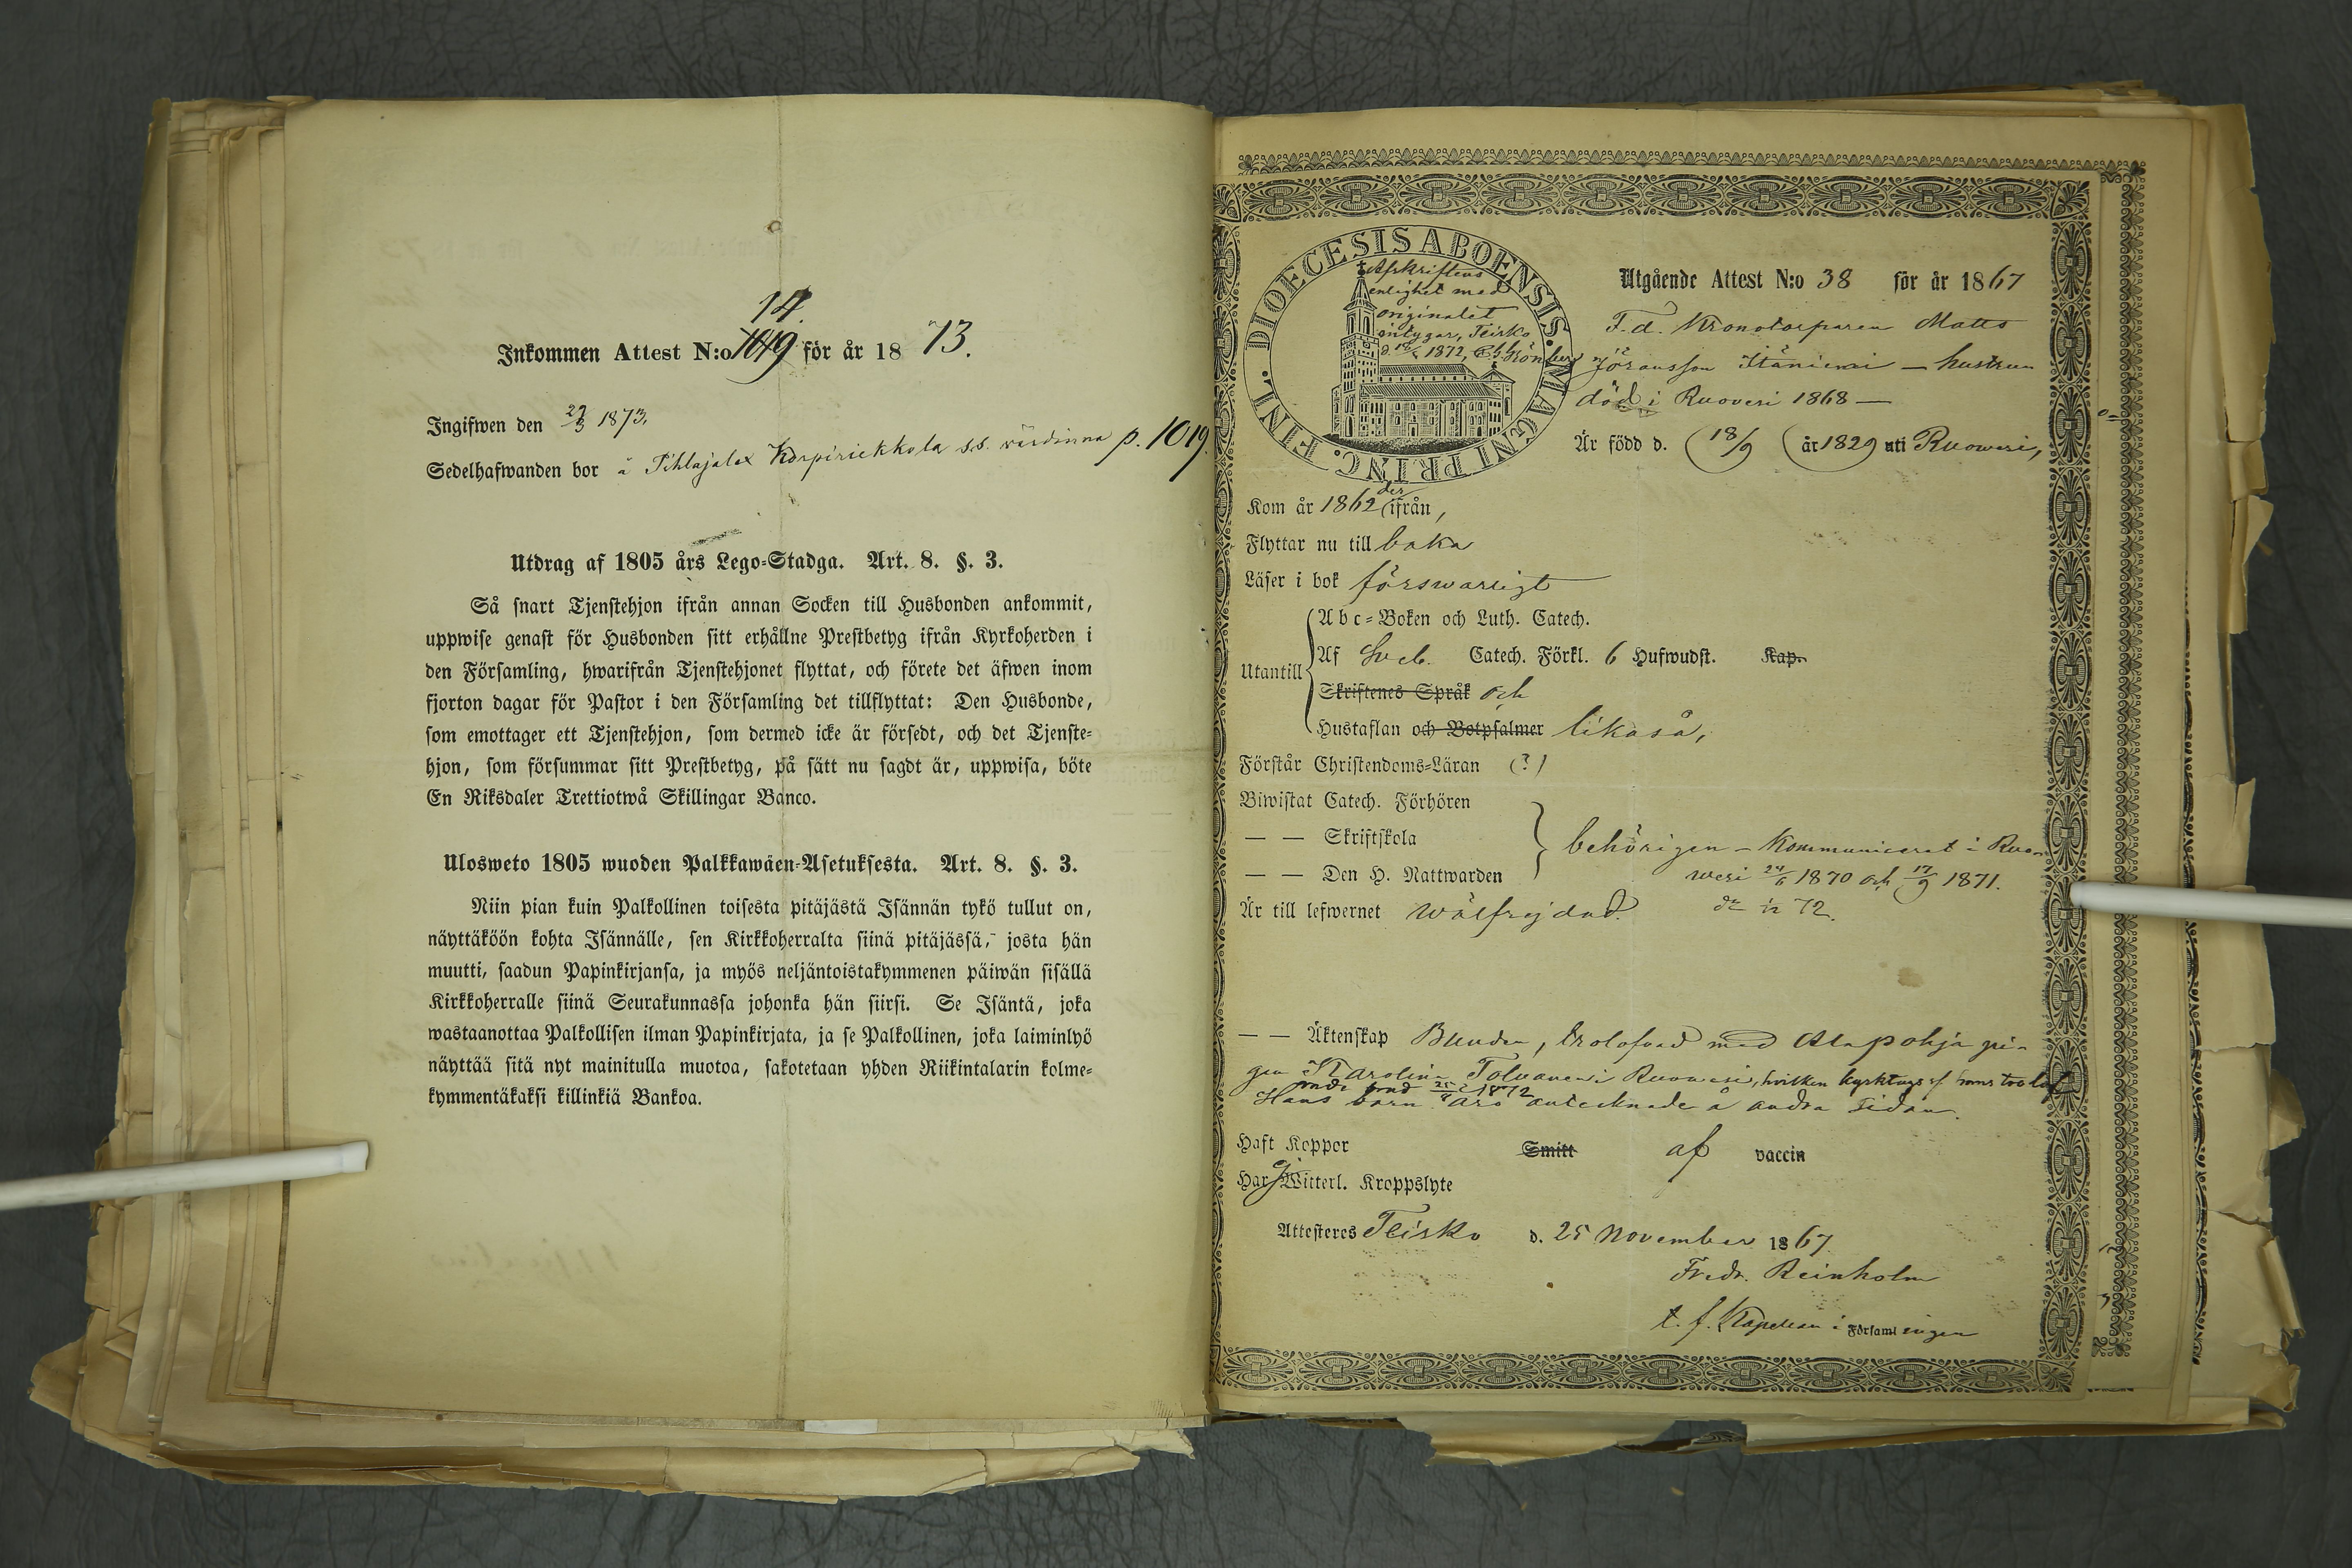 14.
Inkommen Attest N:o 1019 för år 1873.
Ingifwen den 29/3 1873.
Sedelhafwanden bor å Pihlajalax Korpiriekkola s.s. värdinna p. 1019.
Utdrag af 1805 års Lego-Stadga. Art. 8. §. 3.
Så snart Tjenstehjon ifrån annan Socken till Husbonden ankommit,
uppwise genast för Husbonden sitt erhållne Prestbetyg ifrån Kyrkoherden i
den Församling, hwarifrån Tjenstehjonet flyttat, och förete det äfwen inom
fjorton dagar för Pastor i den Församling det tillflyttat: Den Husbonde,
som emottager ett Tjenstehjon, som dermed icke är försedt, och det Tjenste-
hjon, som försummar sitt Prestbetyg, på sätt nu sagdt är, uppwisa, böte
En Riksdaler Trettiotwå Skillingar Banco.
Ulosweto 1805 wuoden Palkkawäen-Asetuksesta. Art. 8. §. 3.
Niin pian kuin Palkollinen toisesta pitäjästä Isännän tykö tullut on,
näyttäköön kohta Isännälle, sen Kirkkoherralta siinä pitäjässä, josta hän
muutti, saadun Papinkirjansa, ja myös neljäntoistakymmenen päiwän sisällä
Kirkkoherralle siinä Seurakunnassa johonka hän siirsi. Se Isäntä, joka
wastaanottaa Palkollisen ilman Papinkirjata, ja se Palkollinen, joka laiminlyö
näyttää sitä nyt mainitulla muotoa, sakotetaan yhden Riikintalarin kolme-
kymmentäkaksi killinkiä Bankoa.
DIOECESIS ABOENSIS. MAGNI PRINC. FINL.
Afskriftens
enlighet med
originalet
intygar, Teisko
1872,
Utgående Attest N:o 38 för år 1867
F.d. Kronotorparen Matts
Jöransson Itäniemi — hustrun
död i Ruovesi 1868 —
Är född d. (18/9 (år 1829 uti Ruowesi,
Kom år 1862 der ifrån,
Flyttar nu till baka
Läser i bok förswarligt
Utantill
Abc-Boken och Luth. Catech.
Af Sveb. Catech. Förkl. 6 Hufwudst. Kap.
Skriftenes Språk och
Hustaflan och Botpsalmer likaså,
Förstår Christendoms-Läran (?)
Biwistat Catech. Förhören
— — Skriftskola
— — Den H. Nattwarden
behörigen – Kommunicerat i Ruo-
wesi 24/6 1870 och 17/9 1871.
72.
Är till lefwernet wälfrejdad.
— — Äktenskap Bunden, trolofvad med Alapohja pi-
gan Karolina Tolvanen i Ruowesi, hvilken kyrktogs
1872
Hans barn äro antecknade å andra sidan.
Haft Koppor Smitt af vaccin
Har ej Witterl. Kroppslyte
Attesteres Teisko d. 25 November 1867.
Fredr. Reinholm
t. f. Kapellan i Församlingen